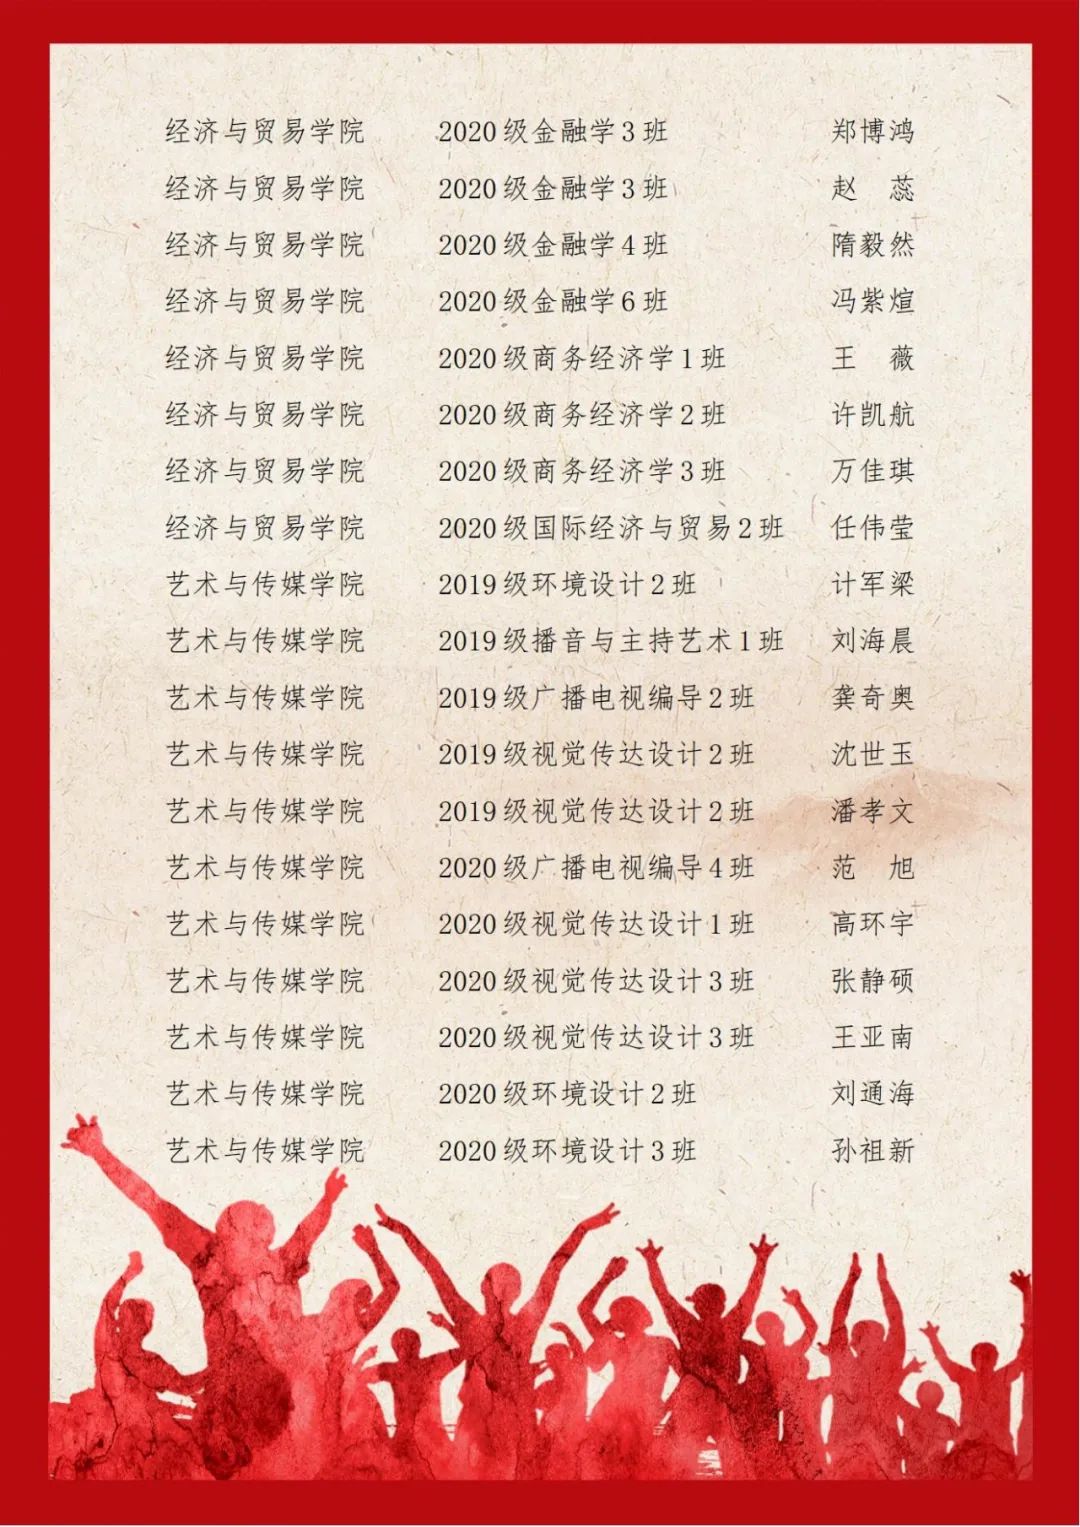 经济与贸易学院 2020级金融学3班 郑博鸿
经济与贸易学院 2020级金融学3班 赵 蕊
经济与贸易学院 2020级金融学4班 隋毅然
经济与贸易学院 2020级金融学6班 冯紫煊
经济与贸易学院 2020级商务经济学1班 王 薇
经济与贸易学院 2020级商务经济学2班 许凯航
经济与贸易学院 2020级商务经济学3班 万佳琪
经济与贸易学院 2020级国际经济与贸易2班 任伟莹
艺术与传媒学院 2019级环境设计2班 计军梁
艺术与传媒学院 2019级播音与主持艺术1班 刘海晨
艺术与传媒学院 2019级广播电视编导2班 龚奇奥
艺术与传媒学院 2019级视觉传达设计2班 沈世玉
艺术与传媒学院 2019级视觉传达设计2班 潘孝文
艺术与传媒学院 2020级广播电视编导4班 范 旭
艺术与传媒学院 2020级视觉传达设计1班 高环宇
艺术与传媒学院 2020级视觉传达设计3班 张静硕
艺术与传媒学院 2020级视觉传达设计3班 王亚南
艺术与传媒学院 2020级环境设计2班 刘通海
艺术与传媒学院 2020级环境设计3班 孙祖新